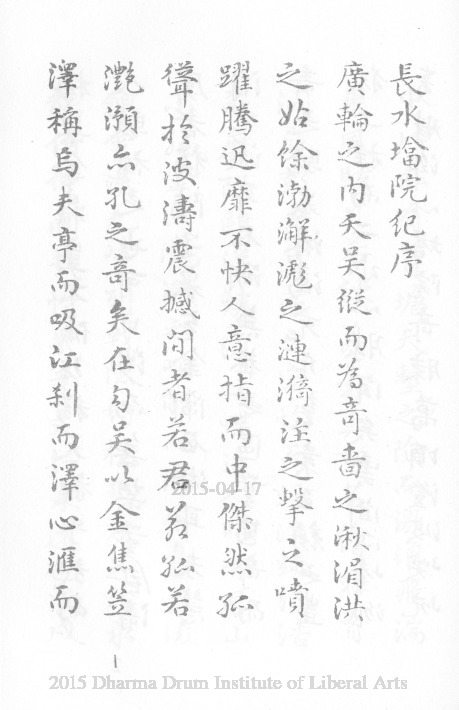 長水塔院紀序
廣輪之內天吳縱而為竒嗇之湫洪
之餘渤澥滮之漣漪注之擊之噴
躍騰迅靡不快人意指而中傑然孤
聳於波濤震撼間者若君若孤若
灩澦亦孔之竒矣在勾吳以金焦笠
澤稱焉夫亭而吸江刹而澤心滙而
2015-04-17
1
2015 Dharma Drum Institute of Liberal Arts